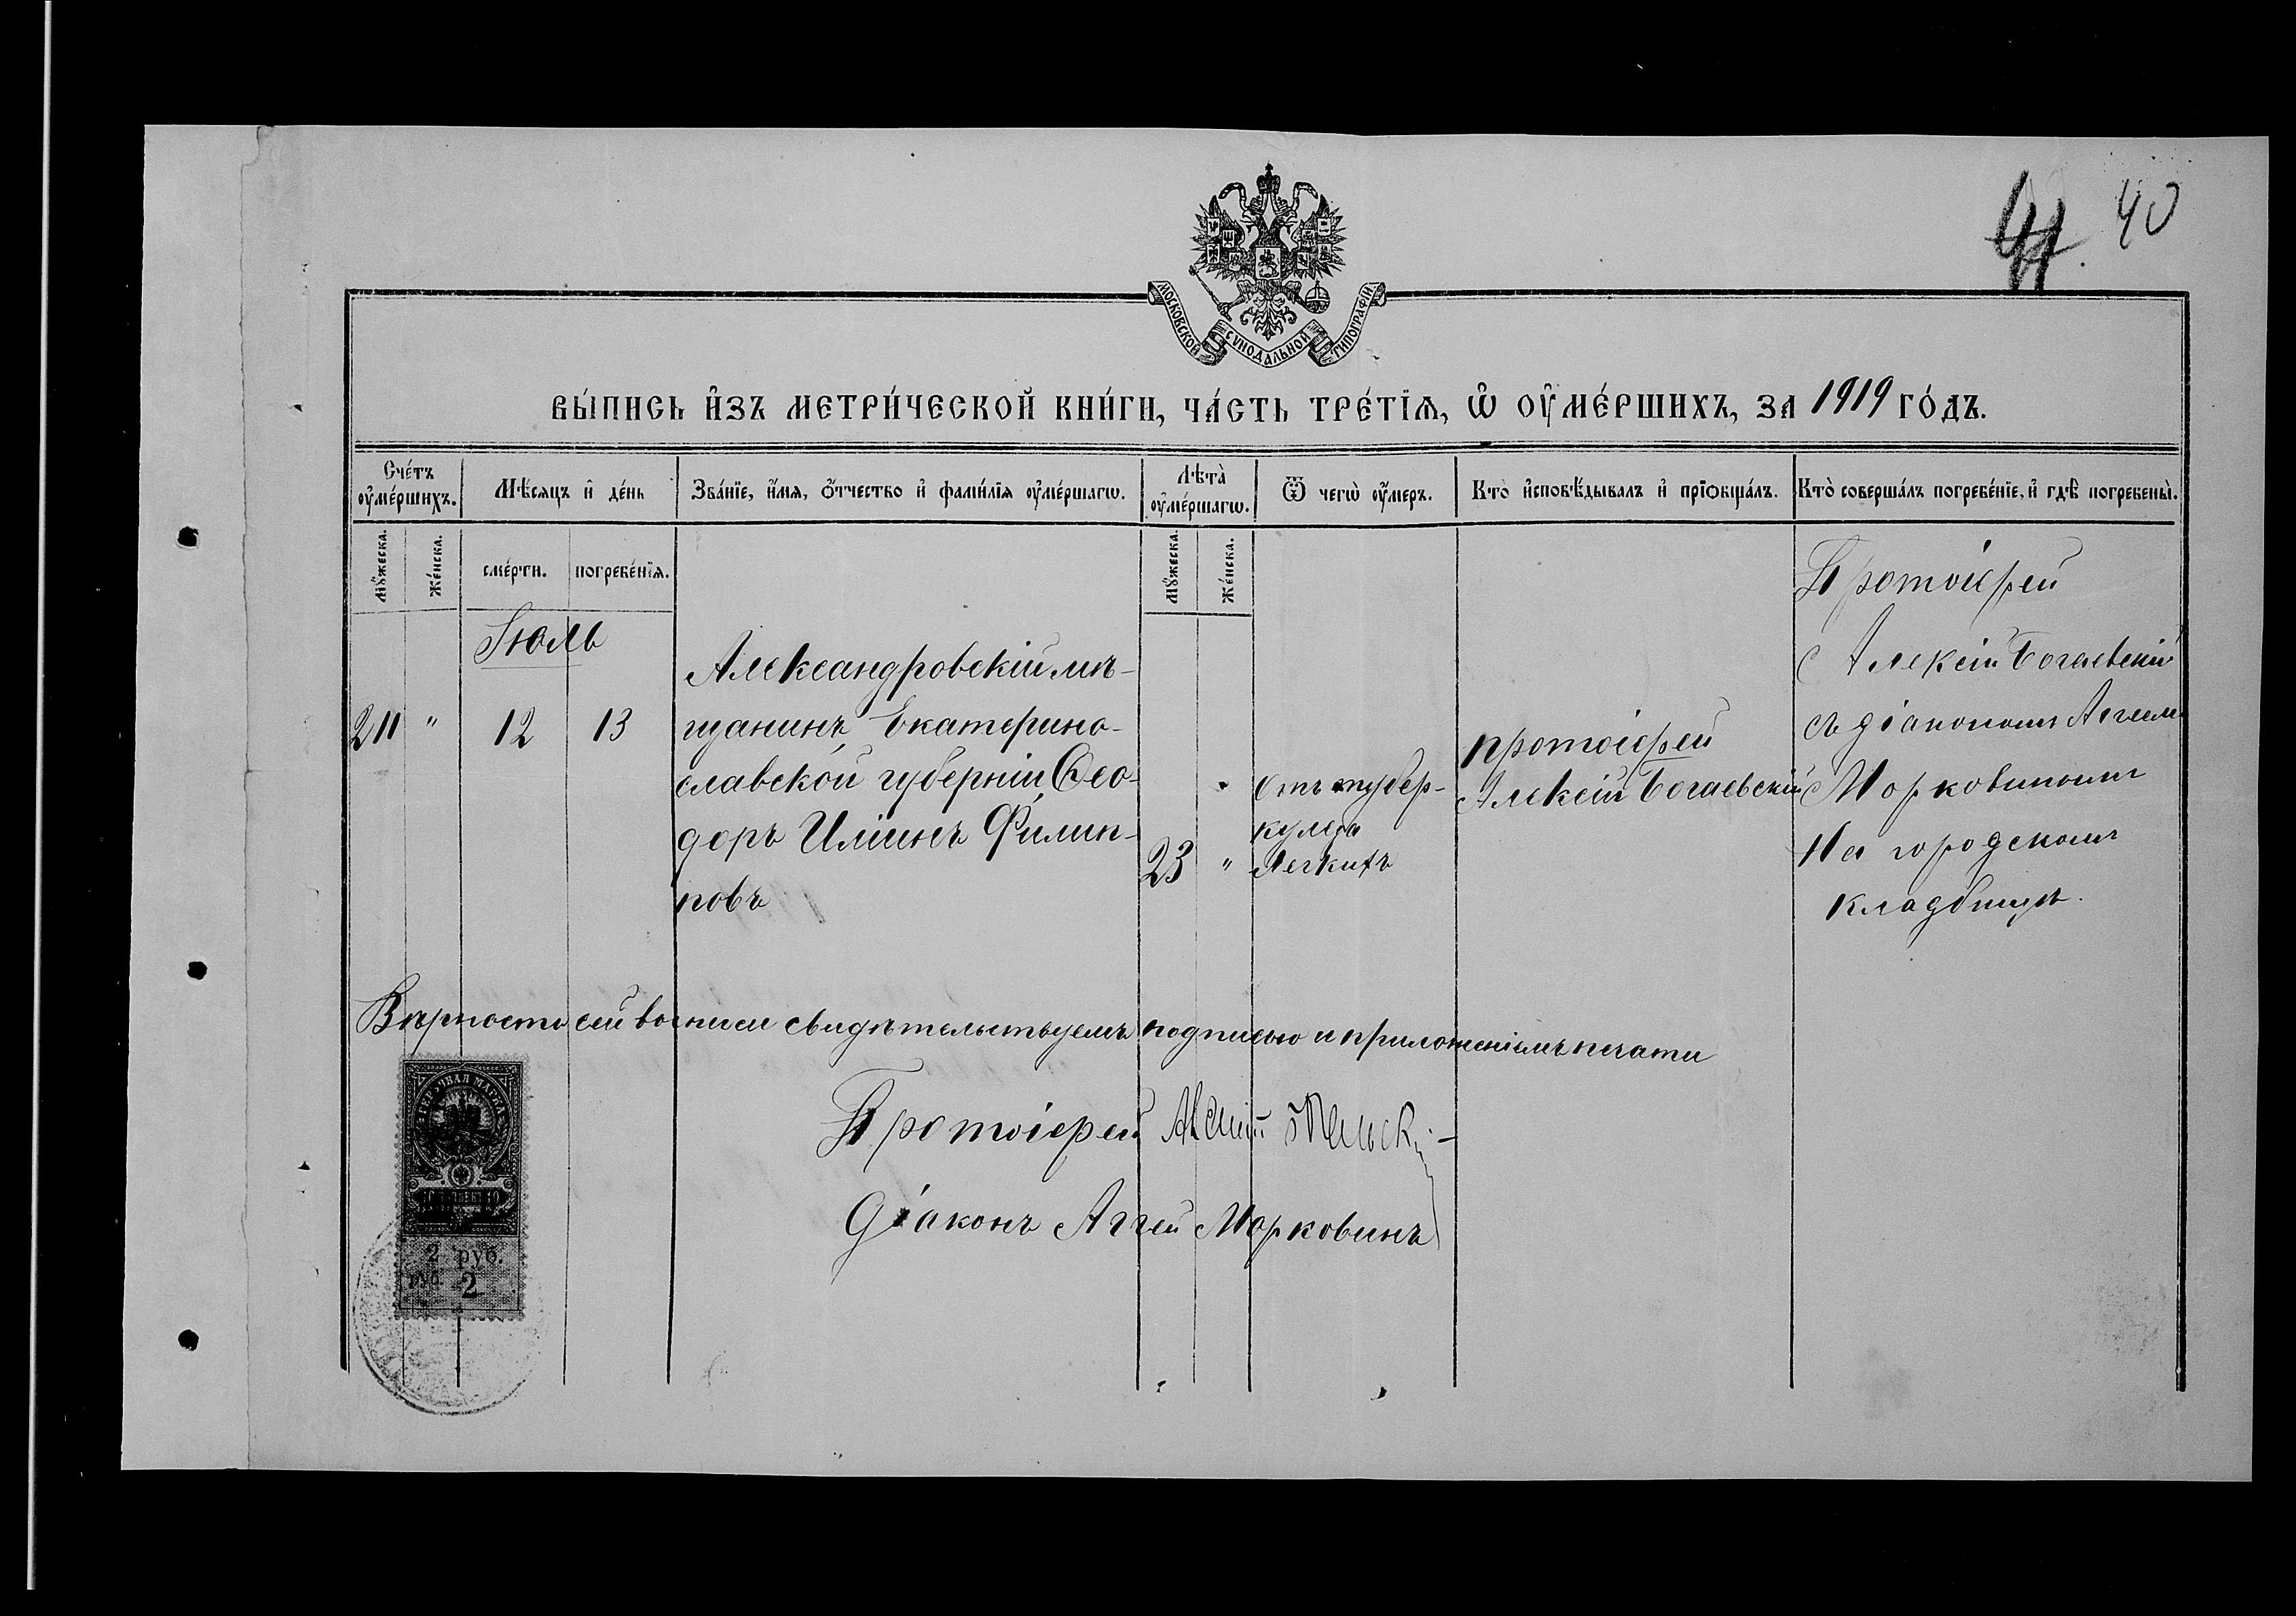 40
МОСКОВСКОЙ СУНОДАЛЬНОЙ ТИПОГРАФІИ
ВЫ́ПИСЬ И҆ЗЪ МЕТРИ́ЧЕСКОЙ КНИ́ГИ, ЧА́СТЬ ТРЕ́ТІѦ, Ѡ҆ ОУ҆МЕ́РШИХЪ, ЗА 1919 ГО́ДЪ.
Сче́тъ оу҆ме́ршихъ.
Мѣ́сяцъ и҆ де́нь
Зва́нїе, и҆́мѧ, ѻ҆́тчество и҆ фами́лїѧ оу҆ме́ршагѡ.
Лѣта̀ оу҆ме́ршагѡ.
Ѿ чегѡ̀ оу҆́меръ.
Кто̀ и҆сповѣ́дывалъ и҆ прїѡбща́лъ.
Кто̀ соверша́лъ погребе́нїе, и҆ гдѣ̀ погребены̀.
Мꙋ́жеска.
Же́нска.
сме́рти.
погребе́нїѧ.
Мꙋ́жеска.
Же́нска.
Іюль
211 " 12 13
Александровскій мѣ-
щанинъ, Екатерино-
славской губерніи, Ѳео-
доръ Иліинъ Филип-
повъ
23 "
Отъ тубер-
кулеза
Легкихъ
протоіерей
Алексій Богаевскій
Протоіерей
Алексій Богаевскій
съ діакономъ Аггеем
Морковиномъ
На городскомъ
кладбищѣ.
Вѣрность сей выписи свидѣтельствуемъ подписью и приложеніемъ печати
Протоіерей Алексій
Діаконъ Аггей Морковинъ
МАРКА
2 руб.
РУБ. 2